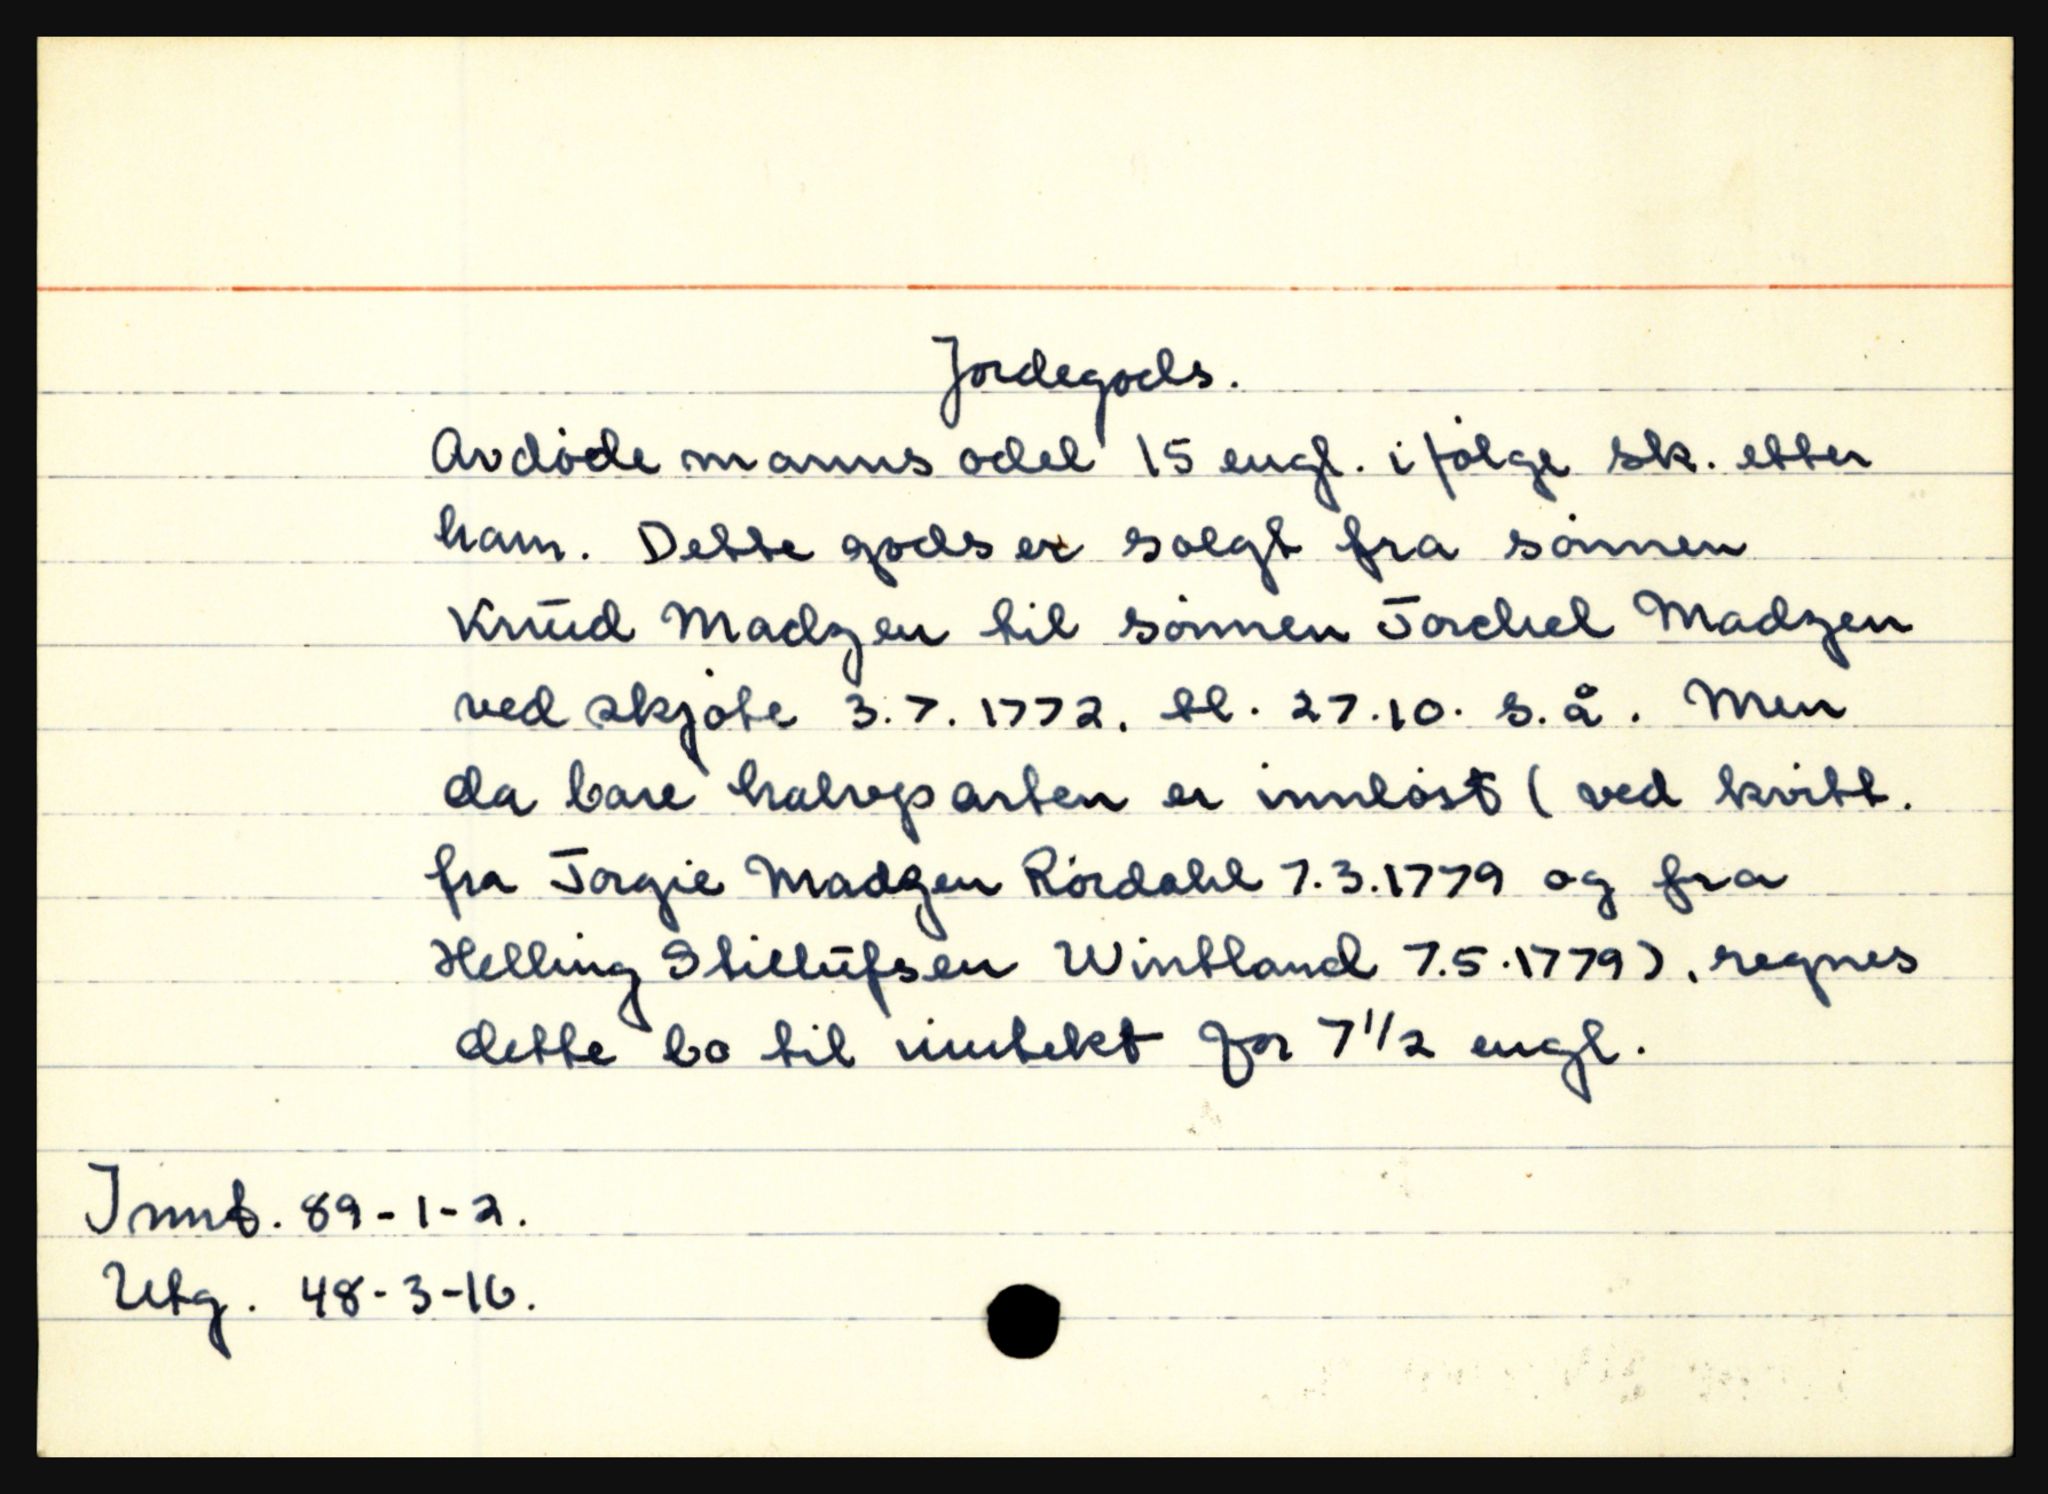 Jordegods.
Avdøde manns odel 15 engl. ifølge sk. etter
ham. Dette gods er solgt fra sønnen
Knūd Madzen til sønnen Torchel Madzen
ved skjøte 3.7.1772. tl. 27.10. s.å. Men
da bare halvparten er innløst ( ved kvitt.
fra Torgie Madzen Rørdahl 7.3.1779 og fra
Helling Stillūfsen Wintland 7.5.1779), regnes
dette bo til inntekt for 7 1/2 engl.
Innt. 89-1-2.
Utg. 48-3-16.